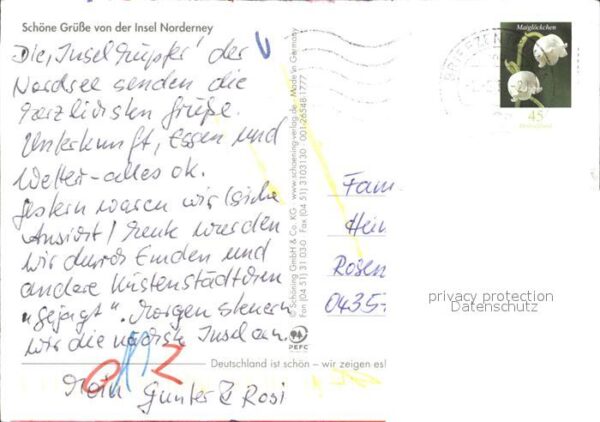 Schöne Grüße von der Insel Norderney
Die „Inselhüpfer" der
Nordsee senden die
herzlichsten Grüße.
Unterkunft, Essen und
Wetter - alles ok.
Gestern waren wir (siehe
Ansicht) heute wurden
wir durch Emden und
andere Küstenstädtchen
"gejagt". Morgen steuern
wir die nächste Insel an.
Deutschland ist schön – wir zeigen es!
Moin Gunter & Rosi
© Schöning GmbH & Co. KG · www.schoening-verlag.de · Made in Germany
Fon (04 51) 31 03-0 · Fax (04 51) 3103130 · 001-26548-177
PEFC
Maiglöckchen
45
Deutschland
BRIEFZEN
Fam
Hein
Rosen
0435
privacy protection
Datenschutz